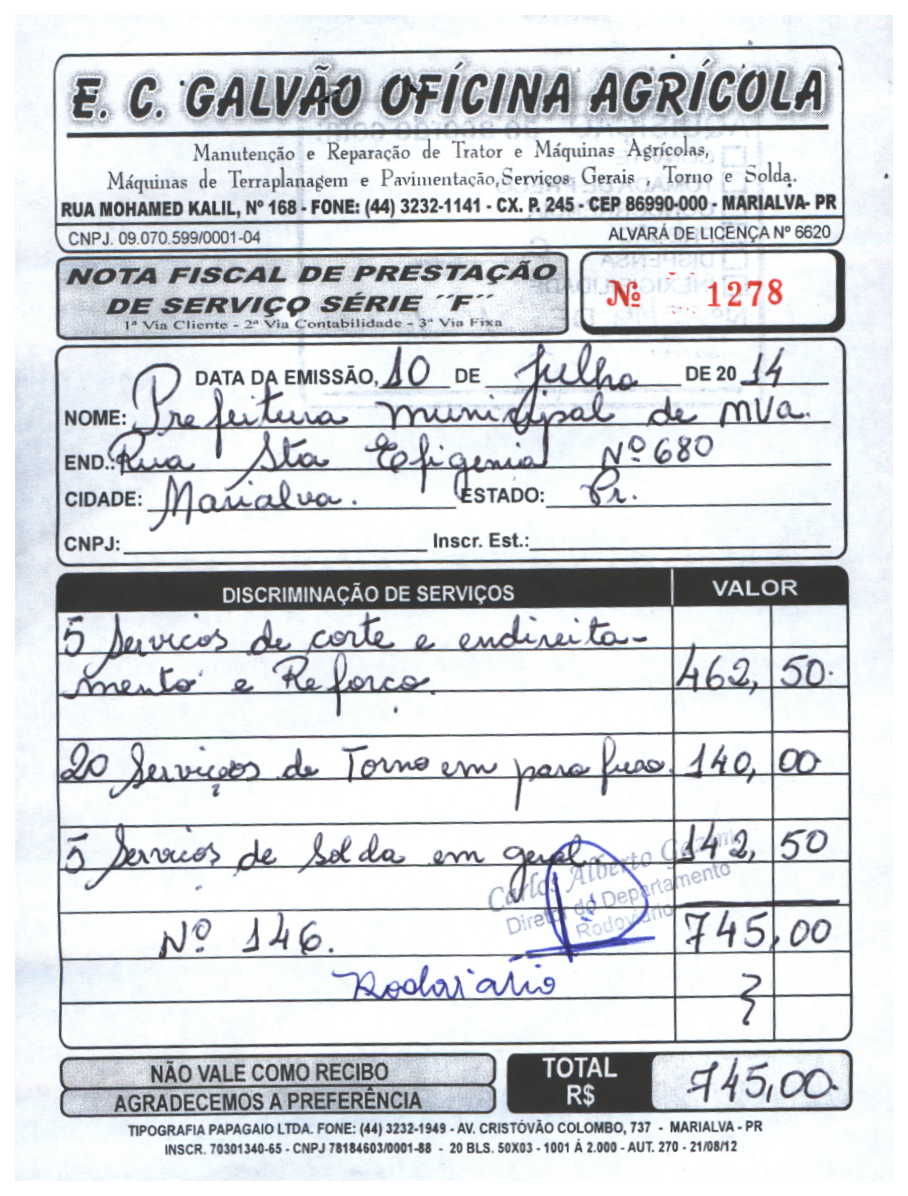 E. C. GALVÃO OFÍCINA AGRÍCOLA
Manutenção e Reparação de Trator e Máquinas Agrícolas,
Máquinas de Terraplanagem e Pavimentação,Serviços Gerais - Torno e Solda.
RUA MOHAMED KALIL, Nº 168 - FONE: (44) 3232-1141 - CX. P. 245 - CEP 86990-000 - MARIALVA- PR
CNPJ. 09.070.599/0001-04 ALVARÁ DE LICENÇA Nº 6620
NOTA FISCAL DE PRESTAÇÃO
DE SERVIÇO SÉRIE ˝F˝
1ª Via Cliente - 2ª Via Contabilidade - 3ª Via Fixa
Nº 1278
DATA DA EMISSÃO, 10 DE Julho DE 20 14
NOME: Prefeitura municipal de mva.
END.: Rua Sta Efigenia Nº 680
CIDADE: Marialva. ESTADO: Pr.
CNPJ: Inscr. Est.:
DISCRIMINAÇÃO DE SERVIÇOS VALOR
5 Servicos de corte e endireita-
mento e Reforço. 462, 50.
20 Serviços de Torno em parafuso. 140, 00
5 Serviços de Solda em geral 142, 50
Carlos Alberto
Diretor do Departamento
Rodoviário
Nº 146. 745,00
Rodoviário
TOTAL
R$ 745,00.
NÃO VALE COMO RECIBO
AGRADECEMOS A PREFERÊNCIA
TIPOGRAFIA PAPAGAIO LTDA. FONE: (44) 3232-1949 - AV. CRISTÓVÃO COLOMBO, 737 - MARIALVA - PR
INSCR. 70301340-65 - CNPJ 78184603/0001-88 - 20 BLS. 50X03 - 1001 Á 2.000 - AUT. 270 - 21/08/12